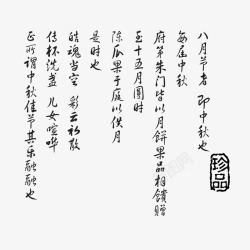 八月节者 即中秋也
每届中秋
府第朱门皆以月饼果品相馈赠
至十五月圆时
陈瓜果于庭以供月
是时也
皓魂当空 彩云初散
传杯洗盏 儿女喧哗
正所谓中秋佳节其乐融融也
珍品